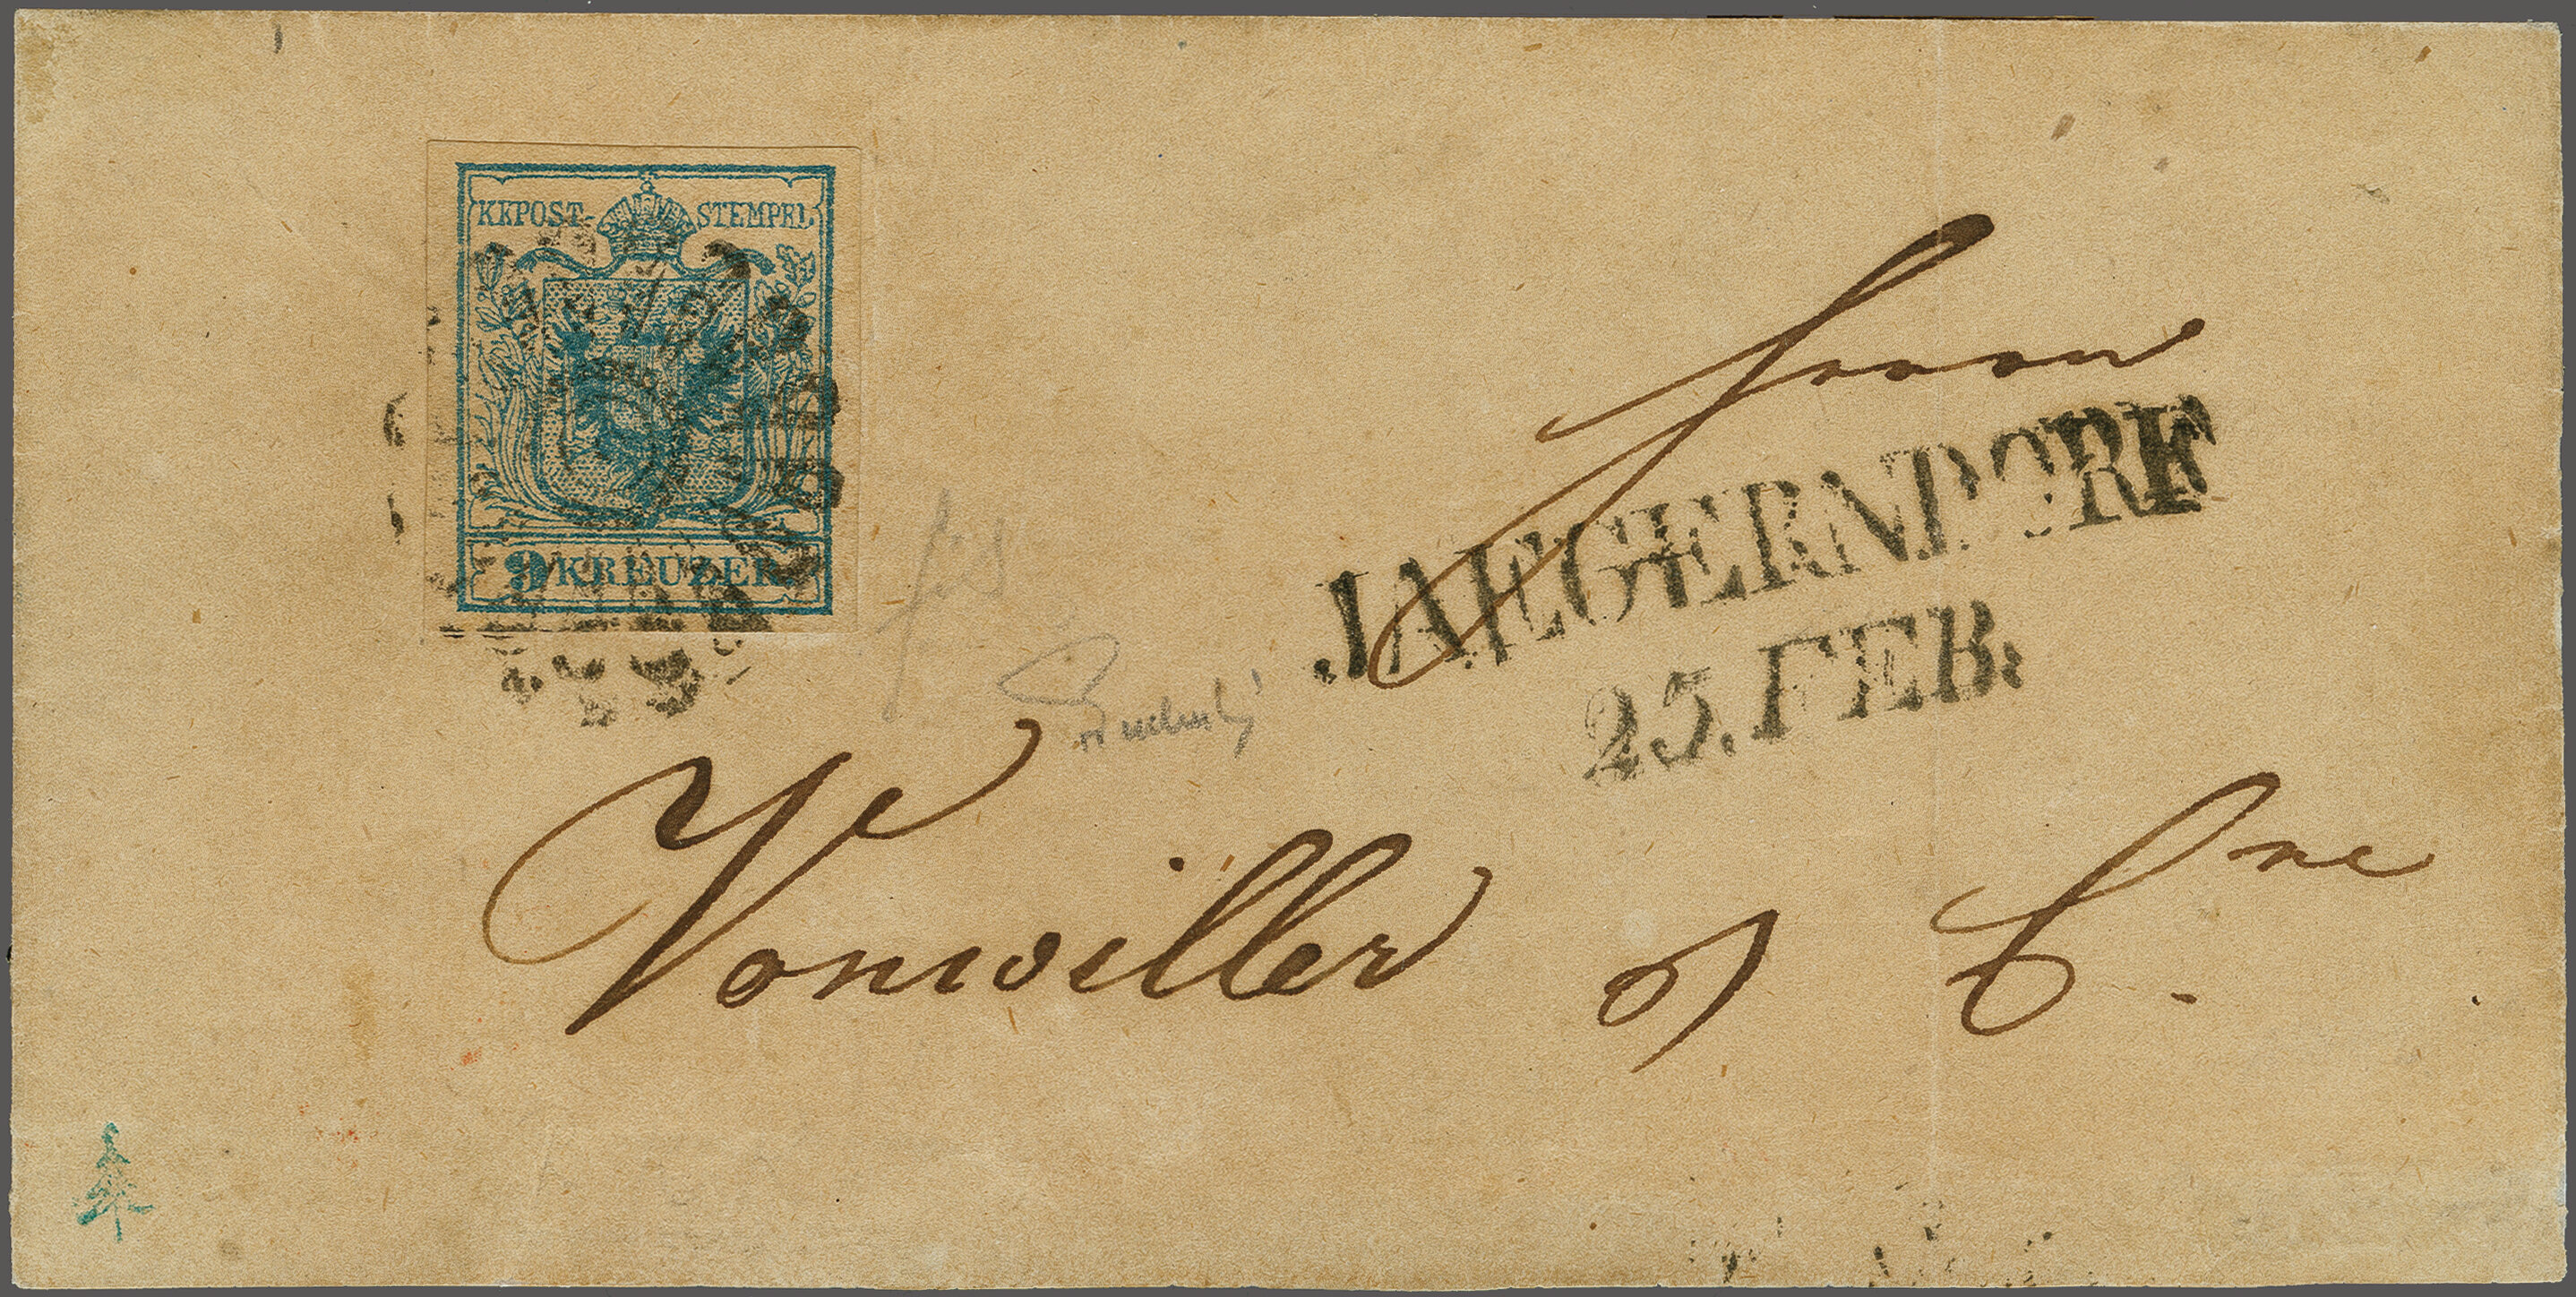 KKPOST-STEMPEL
9 KREUZER.
Herrn
JAEGERNDORF
25. FEB:
Vonwiller & Cne